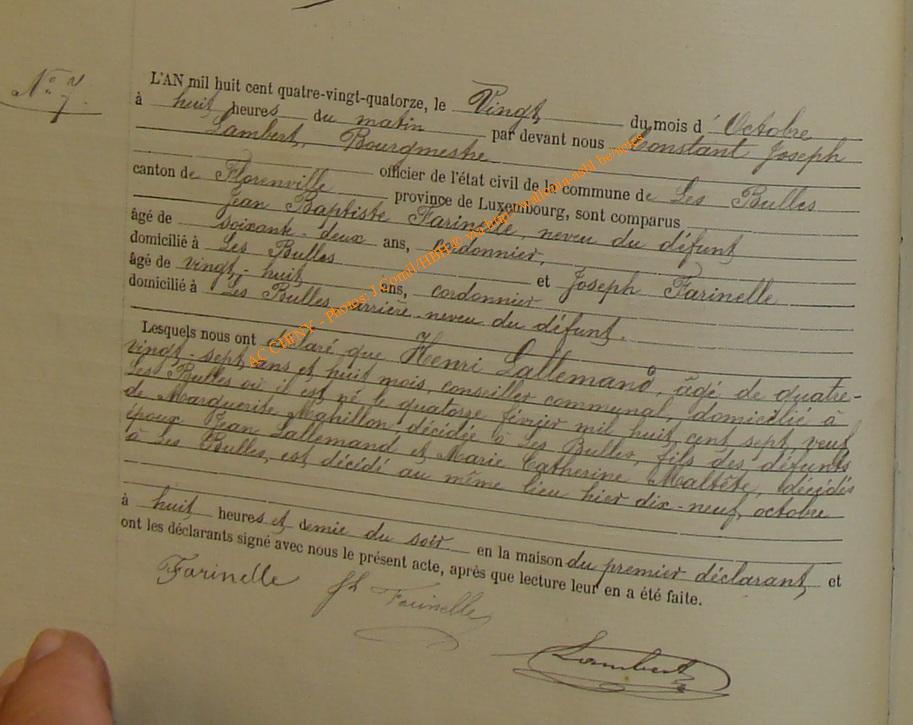 N° 7.
L'AN mil huit cent quatre-vingt-quatorze, le Vingt du mois d' Octobre
à huit heures du matin par devant nous Constant Joseph
Lambert, Bourgmestre officier de l'état civil de la commune de Les Bulles
canton de Florenville province de Luxembourg, sont comparus
Jean Baptiste Farinelle, neveu du défunt
âgé de soixante-deux ans, cordonnier,
domicilié à Les Bulles et Joseph Farinelle
âgé de vingt-huit ans, cordonnier
domicilié à Les Bulles, arrière-neveu du défunt.
Lesquels nous ont déclaré que Henri Lallemand, âgé de quatre-
vingt-sept ans et huit mois, conseiller communal, domicilié à
Les Bulles où il est né le quatorze février mil huit cent sept, veuf
de Marguerite Mahillon, décédée à Les Bulles, fils des défunts
époux Jean Lallemand et Marie Catherine Maltête, décédés
à Les Bulles, est décédé au même lieu hier dix-neuf octobre
à huit heures et demie du soir en la maison du premier déclarant, et
ont les déclarants signé avec nous le présent acte, après que lecture leur en a été faite.
Farinelle Jh Farinelle
Lambert